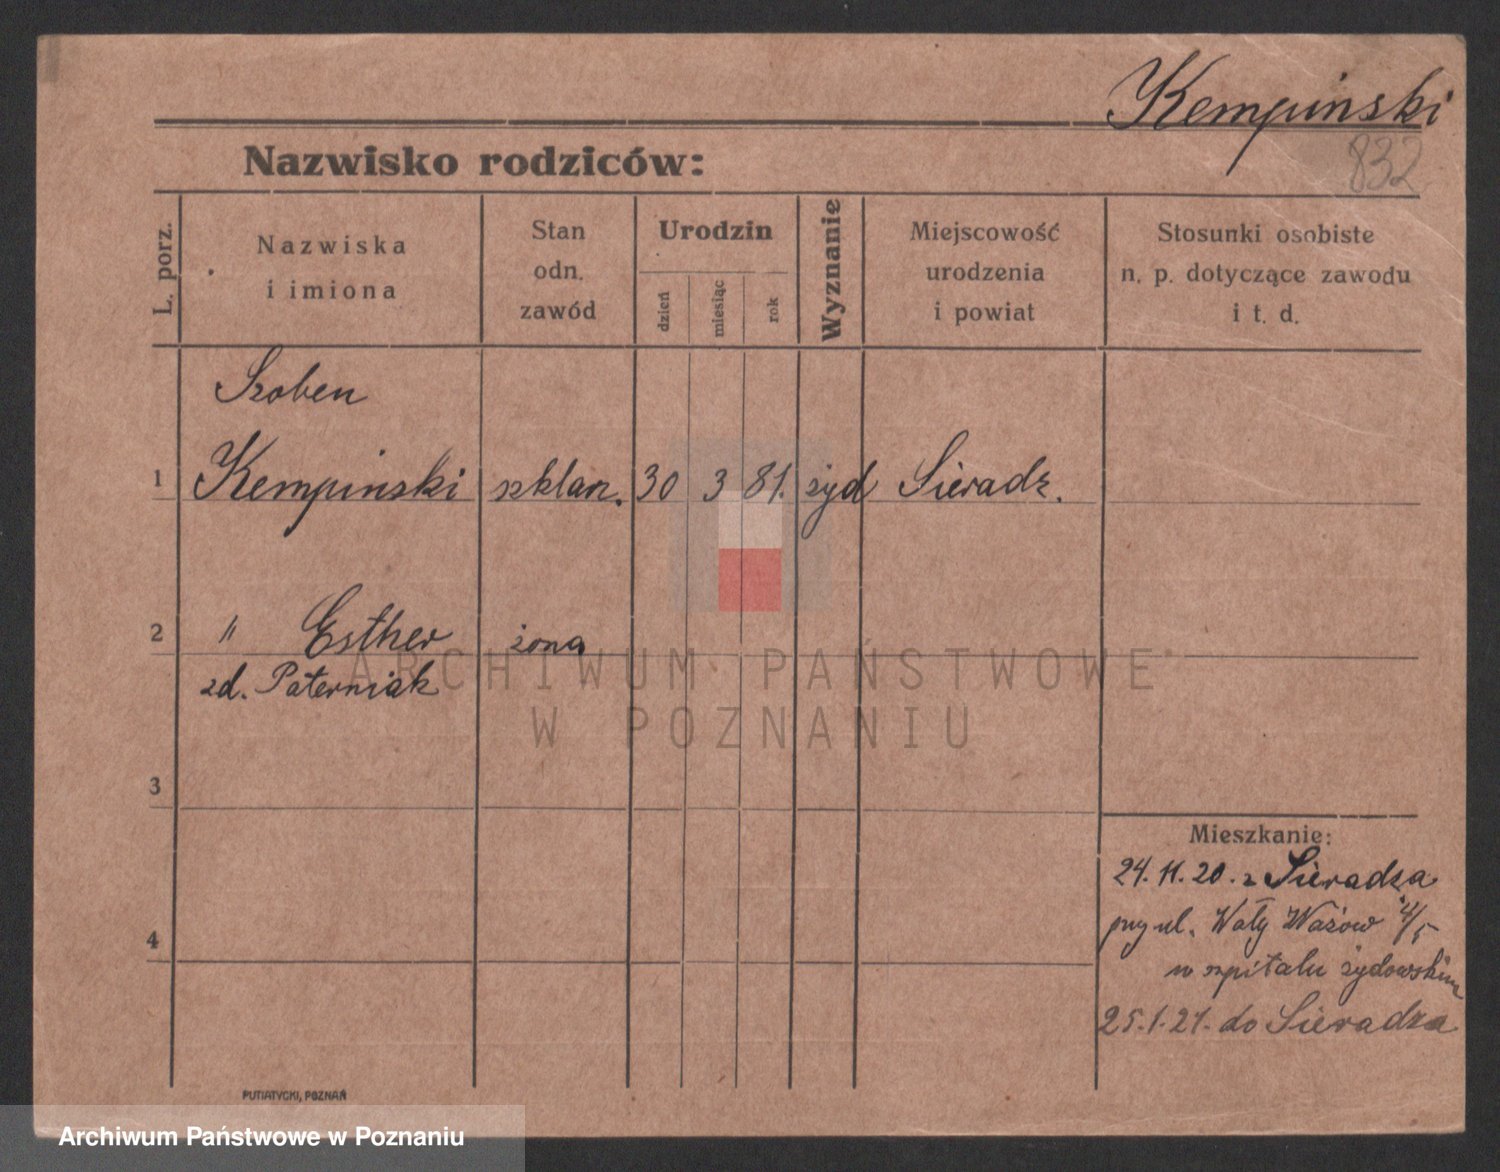 Kempinski
832
Nazwisko rodziców:
L. porz.
Nazwiska
i imiona
Stan
odn.
zawód
Urodzin
dzień
miesiąc
rok
Wyznanie
Miejscowość
urodzenia
i powiat
Stosunki osobiste
n. p. dotyczące zawodu
i t. d.
Szoben
1 Kempinski szklarz. 30 3 81. żyd Sieradz.
2 " Esther żona
zd. Paterniak
3
4
Mieszkanie:
24.11.20. z Sieradza
przy ul. Wały Wazów 4/5
w szpitalu żydowskim
25.1.21. do Sieradza
PUTIATYCKI, POZNAŃ
ARCHIWUM PAŃSTWOWE
W POZNANIU
Archiwum Państwowe w Poznaniu